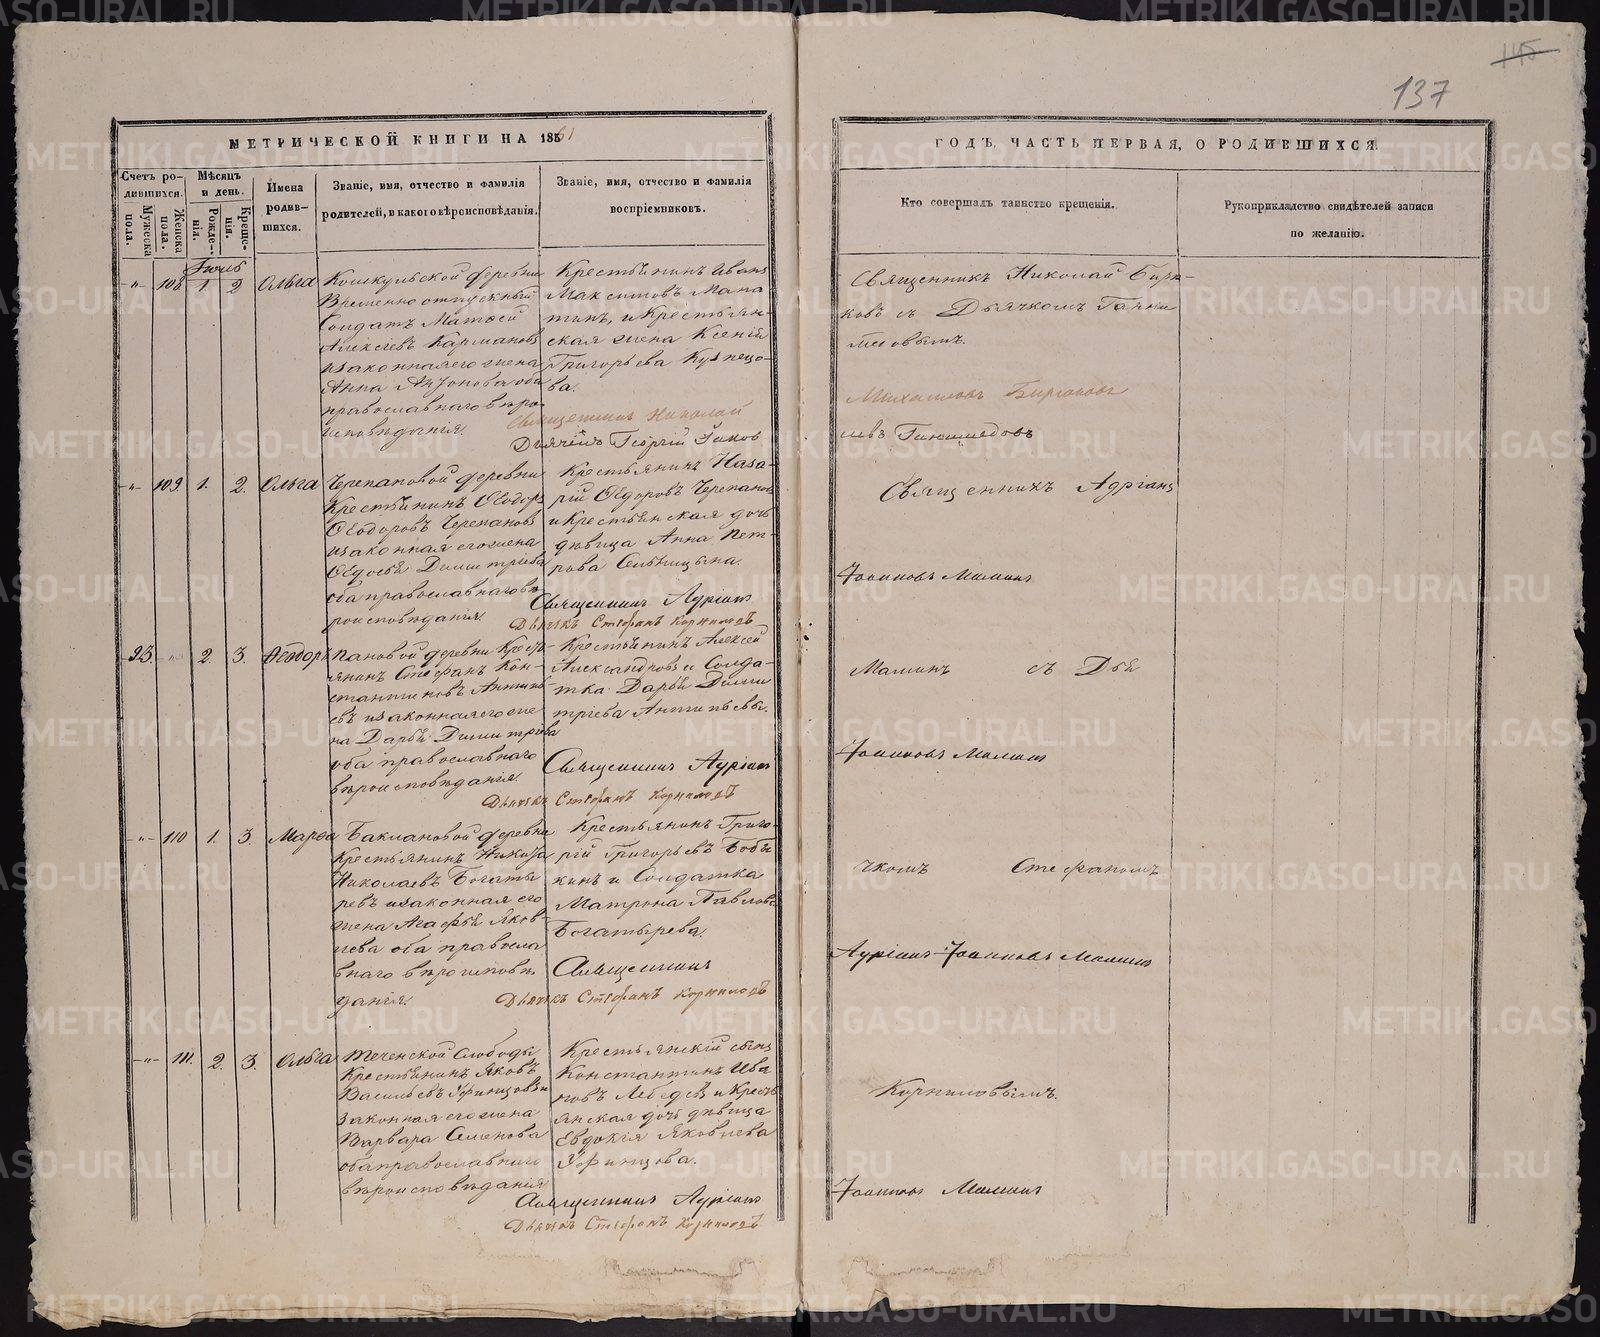 145
137
МЕТРИЧЕСКОЙ КНИГИ НА 1861
ГОДЪ, ЧАСТЬ ПЕРВАЯ, О РОДИВШИХСЯ.
Счетъ ро-
дившихся.
Мужеска
пола.
Женска
пола.
Мѣсяцъ
и день.
Рожде-
нія.
Креще-
нія.
Имена
родив-
шихся.
Званіе, имя, отчество и фамилія
родителей, и какого вѣроисповѣданія.
Званіе, имя, отчество и фамилія
воспріемниковъ.
Кто совершалъ таинство крещенія.
Рукоприкладство свидѣтелей записи
по желанію.
Іюль
108 1 2 Ольга
Кошкульской деревни
Временно отпускный
Солдатъ Матѳей
Алексѣевъ Кармановъ
и законная его жена
Анна Антонова оба
православнаго вѣро
исповѣданія.
Крестьянинъ Иванъ
Максимовъ Мана
тинъ, и Крестьян-
ская жена Ксенія
Григорьева Кузнецо-
ва.
Священникъ Николай
Дьячекъ Георгій
Священникъ Николай Бирю-
ковъ съ Дьячкомъ
Михайловъ Бирюковъ
109. 1. 2. Ольга
Черепановой деревни
Крестьянинъ Ѳеодоръ
Ѳеодоровъ Черепановъ
и законная его жена
Ѳедосья Димитріева
оба православнаго вѣ
роисповѣданія.
Крестьянинъ Наза-
рій Ѳедоровъ Черепановъ
и Крестьянская дочь
дѣвица Анна Пет-
рова
Священникъ Адріанъ
Дьячекъ Стефанъ Корниловъ
Священникъ Адріанъ
Іоанновъ Маминъ
93. 2. 3. Ѳеодоръ
Пановой деревни Кресть
янинъ Стефанъ Кон-
стантиновъ Антипь-
евъ и законная его же
на Дарья Димитріева
оба православнаго
вѣроисповѣданія
Крестьянинъ Алексѣй
Александровъ и Солда-
тка Дарья Дими
тріева Антипьевы.
Священникъ Адріанъ
Дьячекъ Стефанъ Корниловъ
Маминъ съ Дья
Іоанновъ Маминъ
110 1. 3. Марѳа
Баклановой деревни
Крестьянинъ Никита
Николаевъ Богаты
ревъ и законная его
жена Агафья Яков-
лева оба правосла
внаго вѣроисповѣ
данія.
Крестьянинъ Григо-
рій Григорьевъ Бобы
кинъ и Солдатка
Матрона Павлова
Богатырева.
Священникъ
Дьячекъ Стефанъ Корниловъ
чкомъ Стефаномъ
Адріанъ Іоанновъ Маминъ
111. 2. 3. Ольга
Теченской Слободы
Крестьянинъ Яковъ
Васильевъ Уфинцовъ и
законная его жена
Варвара Семенова
оба православнаго
вѣроисповѣданія
Крестьянскій сынъ
Константинъ Ива
новъ Лебедевъ и Кресть
янская дочь дѣвица
Евдокія Яковлева
Уфинцова.
Священникъ Адріанъ
Дьячекъ Стефанъ Корниловъ
Корниловымъ.
Іоанновъ Маминъ
METRIKI.GASO-URAL.RU